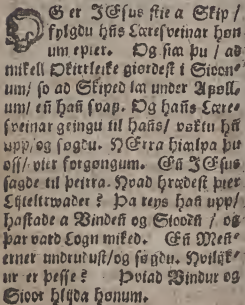 OG er JEsus stie a Skip /
fylgdu hñs Læresveinar høn
um epter. Og siæ þu / ad
mikell Okirrleike giordest i Sioon-
um/ so ad Skiped læ under Apøll-
um/ eñ hañ svap. Og hañs Lære-
sveinar geingu til hañs/ vøktu hñ
upp/og søgdu. HErra hiælpa þu
oss/ vier forgøngum. Eñ JEsus
sagde til þeirra. Hvad hrædest þier
Lijteltrwader? Þa reys hañ upp/
hastade a Vinden og Sioen / og
þar vard Logn miked. Eñ Meñ-
erner undrudust/og søgdu. Hvilijk-
ur er þesse? Þviad Vindur og
Sioor hlyda hønum.